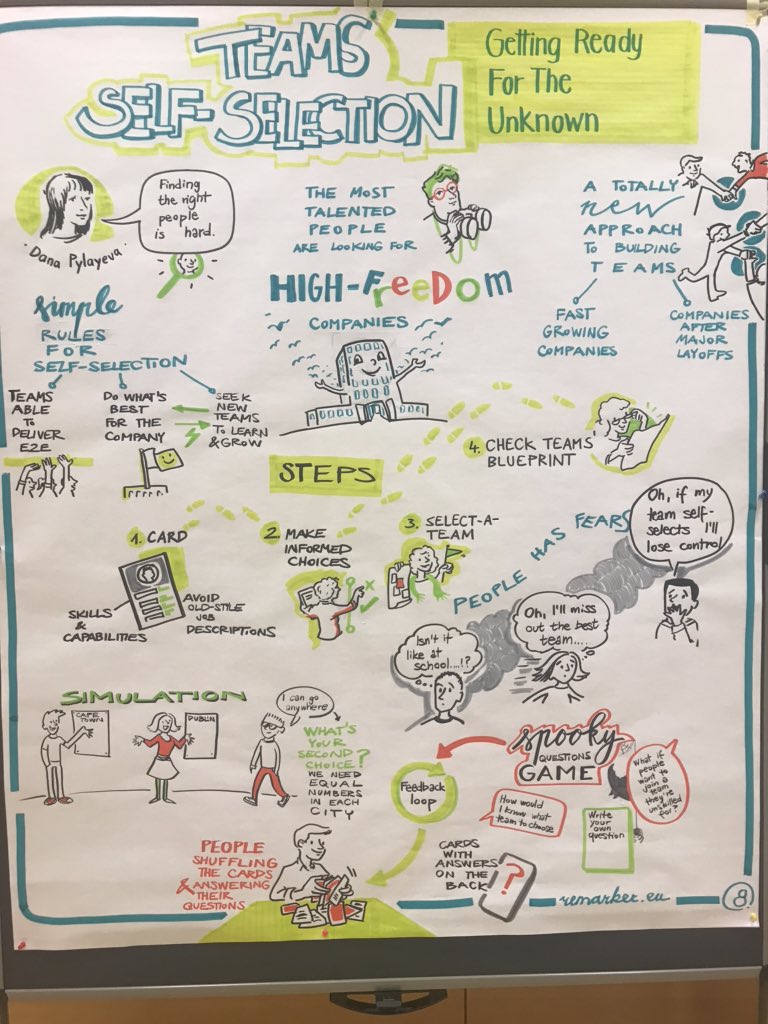 TEAMS
SELF-SELECTION
Getting Ready
For The
Unknown
Finding
the right
people
is hard.
Dana Pylayeva
THE MOST
TALENTED
PEOPLE
ARE LOOKING FOR
HIGH-FREEDOM
COMPANIES
A TOTALLY
new
APPROACH
TO BUILDING
TEAMS
FAST
GROWING
COMPANIES
COMPANIES
AFTER
MAJOR
LAYOFFS
simple
RULES
FOR
SELF-SELECTION
TEAMS
ABLE
TO
DELIVER
E2E
DO WHAT'S
BEST
FOR THE
COMPANY
SEEK
NEW
TEAMS
TO LEARN
& GROW
STEPS
1. CARD
SKILLS
&
CAPABILITIES
AVOID
OLD-STYLE
JOB
DESCRIPTIONS
2. MAKE
INFORMED
CHOICES
3. SELECT-A-
TEAM
4. CHECK TEAMS'
BLUEPRINT
PEOPLE HAS FEARS
Isn't it
like at
school....!?
Oh, I'll miss
out the best
team....
Oh, if my
team self-
selects I'll
lose control
SIMULATION
CAPE
TOWN
DUBLIN
I can go
anywhere
WHAT'S
YOUR
SECOND
CHOICE?
WE NEED
EQUAL
NUMBERS
IN EACH
CITY
spooky
QUESTIONS
GAME
What if
people
want to
join a
team
they're
unskilled
for?
How would
I know what
team to choose
Write
your own
question
Feedback
loop
CARDS
WITH
ANSWERS
ON THE
BACK
?
PEOPLE
SHUFFLING
THE CARDS
& ANSWERING
THEIR
QUESTIONS
remarker.eu
8